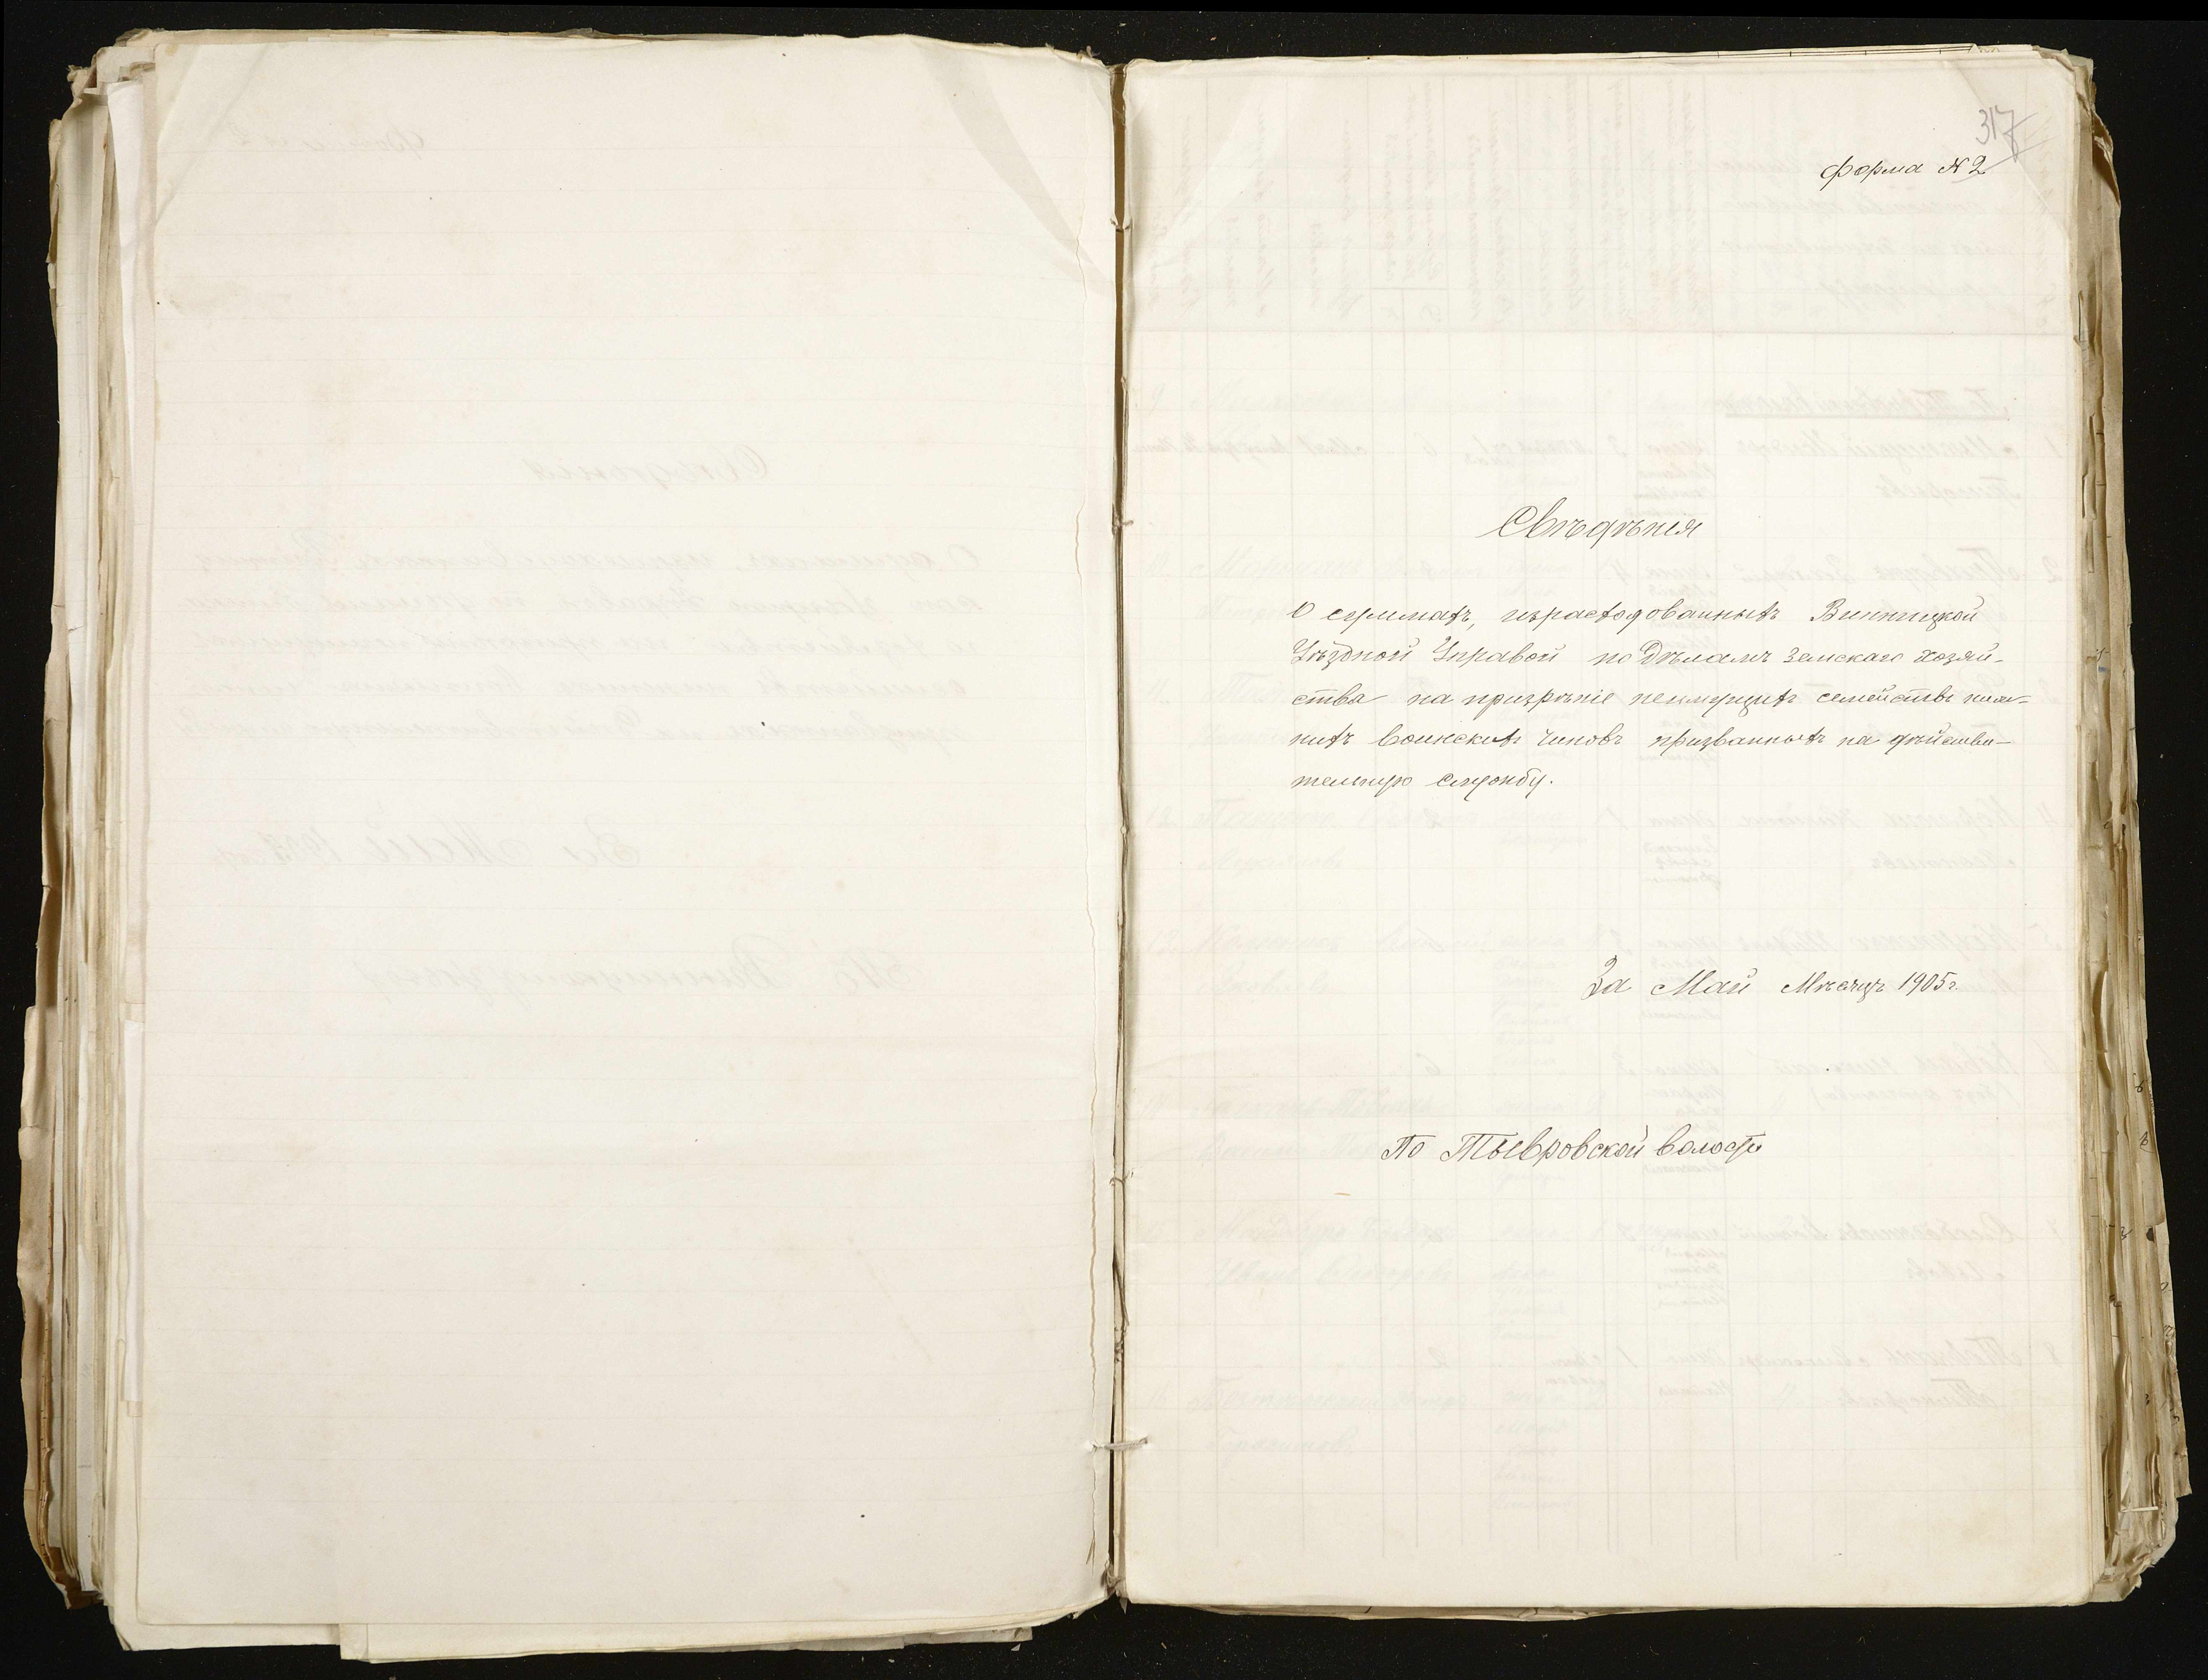 317
форма №2
Свѣдѣнія
О суммахъ, израсходованныхъ Винницкой
Уѣздной Управой по Дѣламъ Земскаго Хозяй-
ства на призрѣніе неимущихъ семействъ ниж-
нихъ воинскихъ чиновъ призванныхъ на дѣйстви-
тельную службу.
За Май Мѣсяцъ 1905 г.
По Тывровской волости